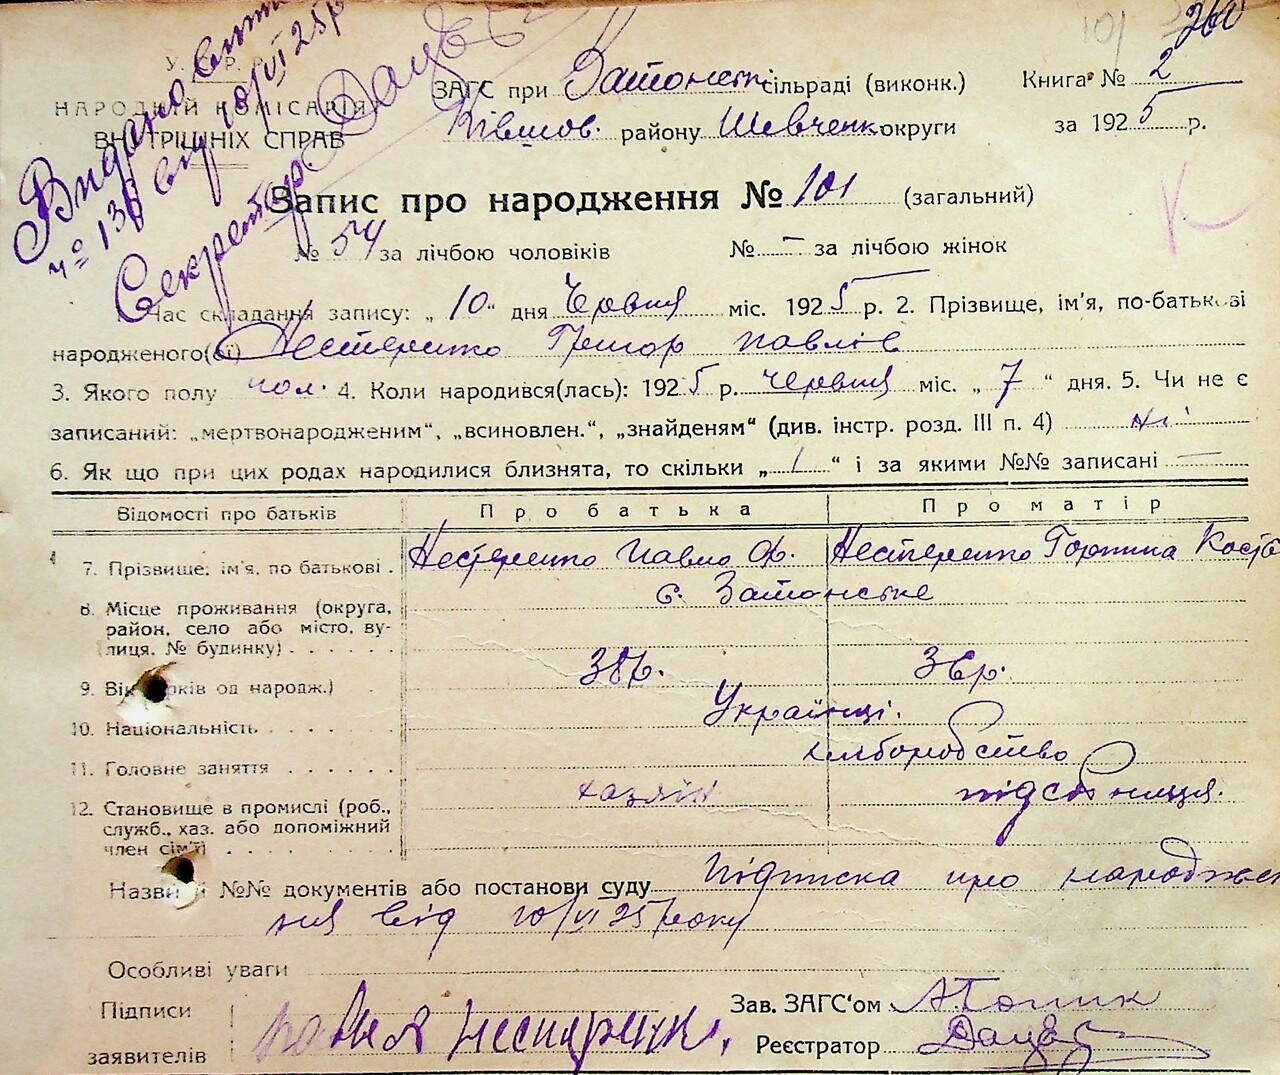 260
101
У. С. Р. Р.
НАРОДНІЙ КОМІСАРІЯТ
ВНУТРІШНІХ СПРАВ
Видано витяг
ч° 136 10/VI 25 р
Секретарь
ЗАГС при Затонськ сільраді (виконк.)
Книга № 2
районy Шевченк. округи
за 1925 р.
Запис про народження № 101 (загальний)
№ 54 за лічбою чоловіків
№ – за лічбою жінок
1. Час складання запису: „10“ дня Червня міс. 1925 р. 2. Прізвище, ім'я, по-батькові
народженого(ої) Нестеренко Григор Павлів
3. Якого полу чол. 4. Коли народився(лась): 1925 р. червня міс. „7“ дня. 5. Чи не є
записаний: „мертвонародженим“, „всиновлен.“, „знайденям“ (див. інстр. розд. III п. 4) ні
6. Як що при цих родах народилися близнята, то скільки „1“ і за якими №№ записані —
Відомості про батьків
Про батька
Про матір
7. Прізвище, ім'я, по батькові .
Нестеренко Павло Ф.
Нестеренко Горпина Кост
8. Місце проживання (округа,
район, село або місто, ву-
лиця, № будинку) . . . . . .
с. Затонське
9. Вік (років од народж.) .
38 р.
36 р.
10. Національність . . . . . .
Українці.
11. Головне заняття . . . . . .
хлборобство
12. Становище в промислі (роб.,
служб., хаз. або допоміжний
член сім'ї) . . . . . . . . .
хазяїн
підсобниця.
Назви й №№ документів або постанови суду Підписка про народжен
ня від 10/VI 25 року
Особливі уваги
Підписи
заявителів
Зав. ЗАГС'ом
Реєстратор